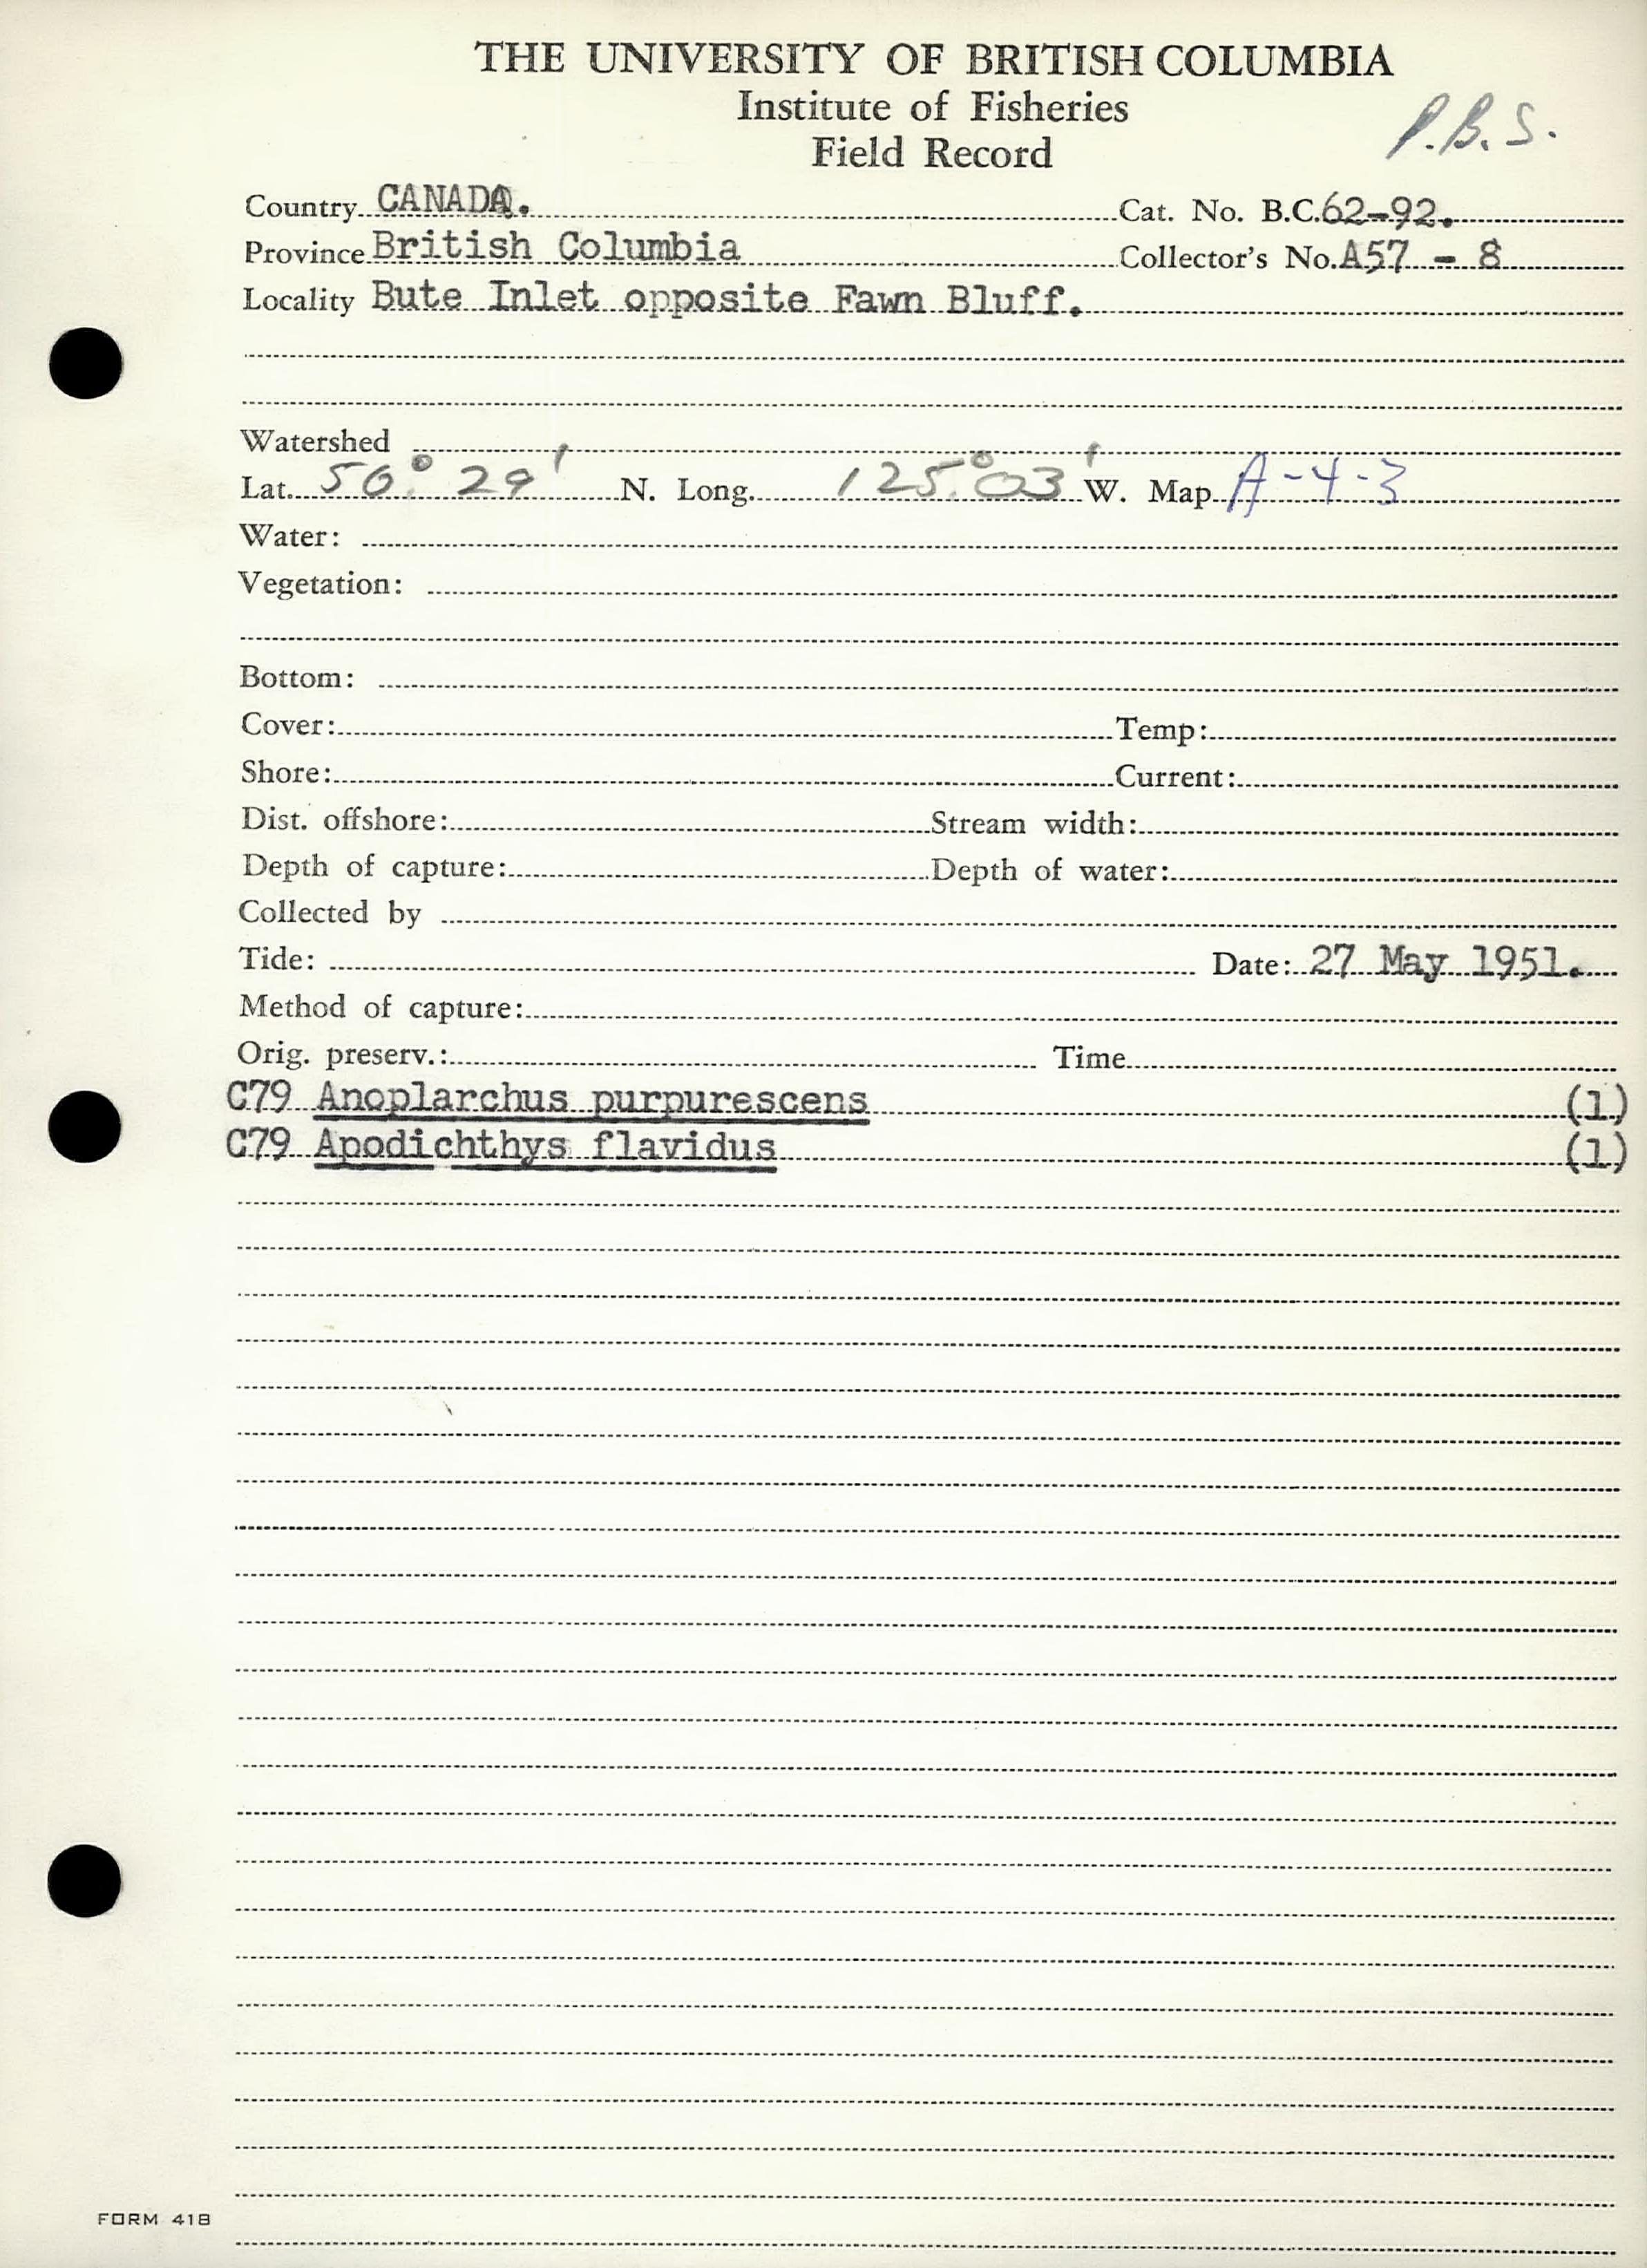 THE UNIVERSITY OF BRITISH COLUMBIA
Institute of Fisheries
P.B.S.
Field Record
Country CANADA. Cat. No. B.C. 62-92.
Province British Columbia Collector's No. A57 - 8
Locality Bute Inlet opposite Fawn Bluff.
Watershed
Lat. 50° 29' N. Long. 125° 03' W. Map A-4-3
Water:
Vegetation:
Bottom:
Cover: Temp:
Shore: Current:
Dist. offshore: Stream width:
Depth of capture: Depth of water:
Collected by
Tide: Date: 27 May 1951.
Method of capture:
Orig. preserv.: Time
C79 Anoplarchus purpurescens (1)
C79 Apodichthys flavidus (1)
FORM 41B